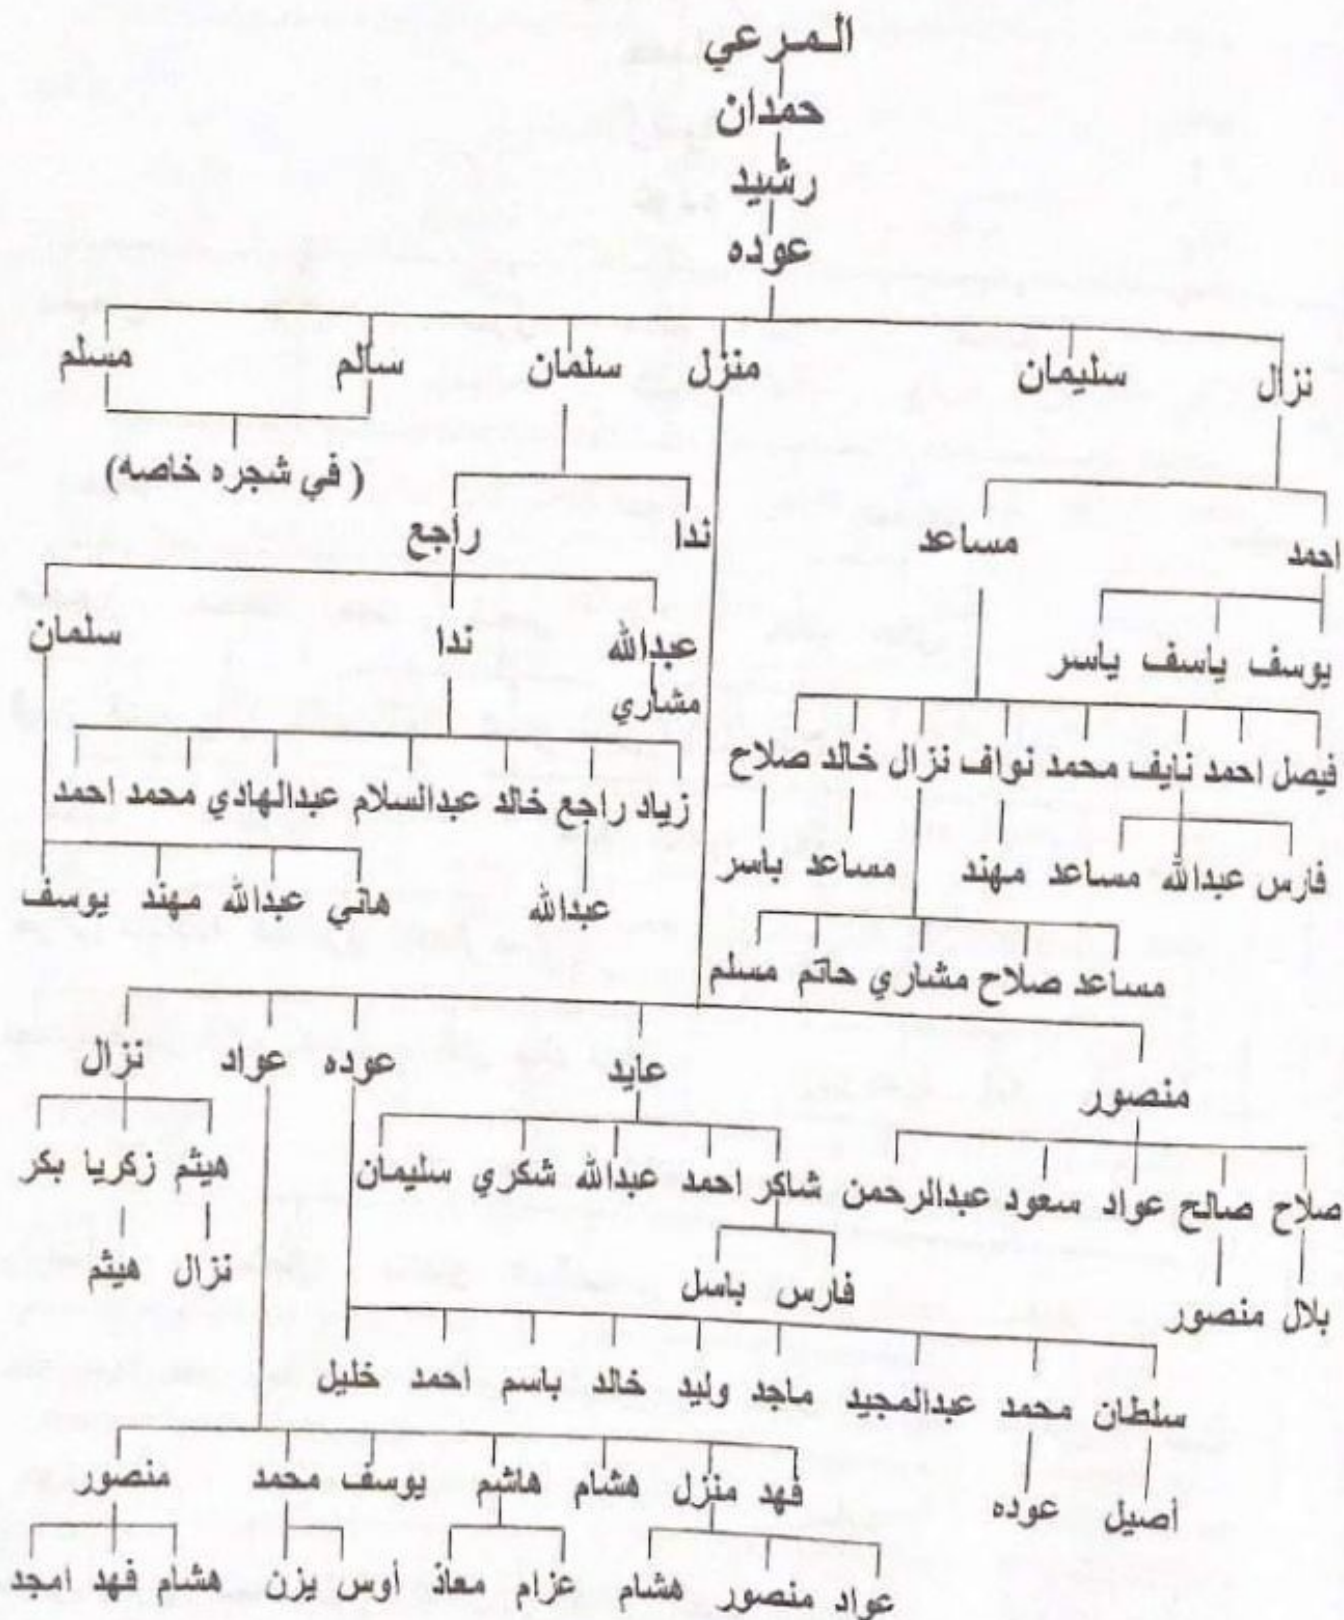 المرعي
حمدان
رشيد
عوده
نزال سليمان منزل سلمان سالم مسلم
( في شجره خاصه)
احمد مساعد ندا راجع
يوسف ياسف ياسر عبدالله ندا سلمان
مشاري
فيصل احمد نايف محمد نواف نزال خالد صلاح زياد راجع خالد عبدالسلام عبدالهادي محمد احمد
فارس عبدالله مساعد مهند مساعد باسر عبدالله هاني عبدالله مهند يوسف
مساعد صلاح مشاري حاتم مسلم
منصور عايد عوده عواد نزال
صلاح صالح عواد سعود عبدالرحمن شاكر احمد عبدالله شكري سليمان هيثم زكريا بكر
بلال منصور فارس باسل نزال هيثم
سلطان محمد عبدالمجيد ماجد وليد خالد باسم احمد خليل
أصيل عوده فهد منزل هشام هاشم يوسف محمد منصور
عواد منصور هشام عزام معاذ أوس يزن هشام فهد امجد